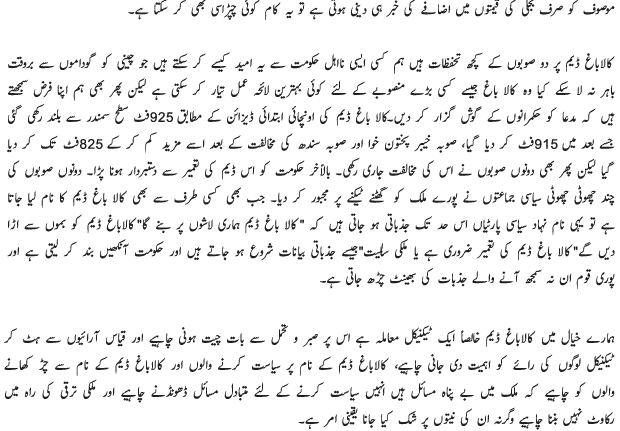 موصوف کو صرف بجلی کی قیمتوں میں اضافے کی خبر ہی دینی ہوتی ہے تو یہ کام کوئی چپڑاسی بھی کر سکتا ہے۔
کالاباغ ڈیم پر دو صوبوں کے کچھ تحفظات ہیں ہم کسی ایسی نااہل حکومت سے یہ امید کیسے کر سکتے ہیں جو چینی کو گوداموں سے بروقت
باہر نہ لا سکے کیا وہ کالا باغ جیسے کسی بڑے منصوبے کے لئے کوئی بہترین لائحہ عمل تیار کر سکتی ہے لیکن پھر بھی ہم اپنا فرض سمجھتے
ہیں کہ مدعا کو حکمرانوں کے گوش گزار کر دیں۔کالا باغ ڈیم کی اونچائی ابتدائی ڈیزائن کے مطابق 925فٹ سطح سمندر سے بلند رکھی گئی
جسے بعد میں 915فٹ کر دیا گیا، صوبہ خیبر پختون خوا اور صوبہ سندھ کی مخالفت کے بعد اسے مزید کم کر کے 825فٹ تک کر دیا
گیا لیکن پھر بھی دونوں صوبوں نے اس کی مخالفت جاری رکھی۔ بالآخر حکومت کو اس ڈیم کی تعمیر سے دستبردار ہونا پڑا۔ دونوں صوبوں کی
چند چھوٹی چھوٹی سیاسی جماعتوں نے پورے ملک کو گھٹنے ٹیکنے پر مجبور کر دیا۔ جب بھی کسی طرف سے بھی کالا باغ ڈیم کا نام لیا جاتا
ہے تو یہی نام نہاد سیاسی پارٹیاں اس حد تک جذباتی ہو جاتی ہیں کہ "کالا باغ ڈیم ہماری لاشوں پر بنے گا"کالاباغ ڈیم کو بموں سے اڑا
دیں گے"کالا باغ ڈیم کی تعمیر ضروری ہے یا ملکی سالمیت"جیسے جذباتی بیانات شروع ہو جاتے ہیں اور حکومت آنکھیں بند کر لیتی ہے اور
پوری قوم ان نہ سمجھ آنے والے جذبات کی بھینٹ چڑھ جاتی ہے۔
ہمارے خیال میں کالاباغ ڈیم خالصاً ایک ٹیکنیکل معاملہ ہے اس پر صبر و تحمل سے بات چیت ہونی چاہیے اور قیاس آرائیوں سے ہٹ کر
ٹیکنیکل لوگوں کی رائے کو اہمیت دی جانی چاہیے، کالاباغ ڈیم کے نام پر سیاست کرنے والوں اور کالاباغ ڈیم کے نام سے چڑ کھانے
والوں کو چاہیے کہ ملک میں بے پناہ مسائل ہیں انہیں سیاست کرنے کے لئے متبادل مسائل ڈھونڈنے چاہیے اور ملکی ترقی کی راہ میں
رکاوٹ نہیں بننا چاہیے وگرنہ ان کی نیتوں پر شک کیا جانا یقینی امر ہے۔